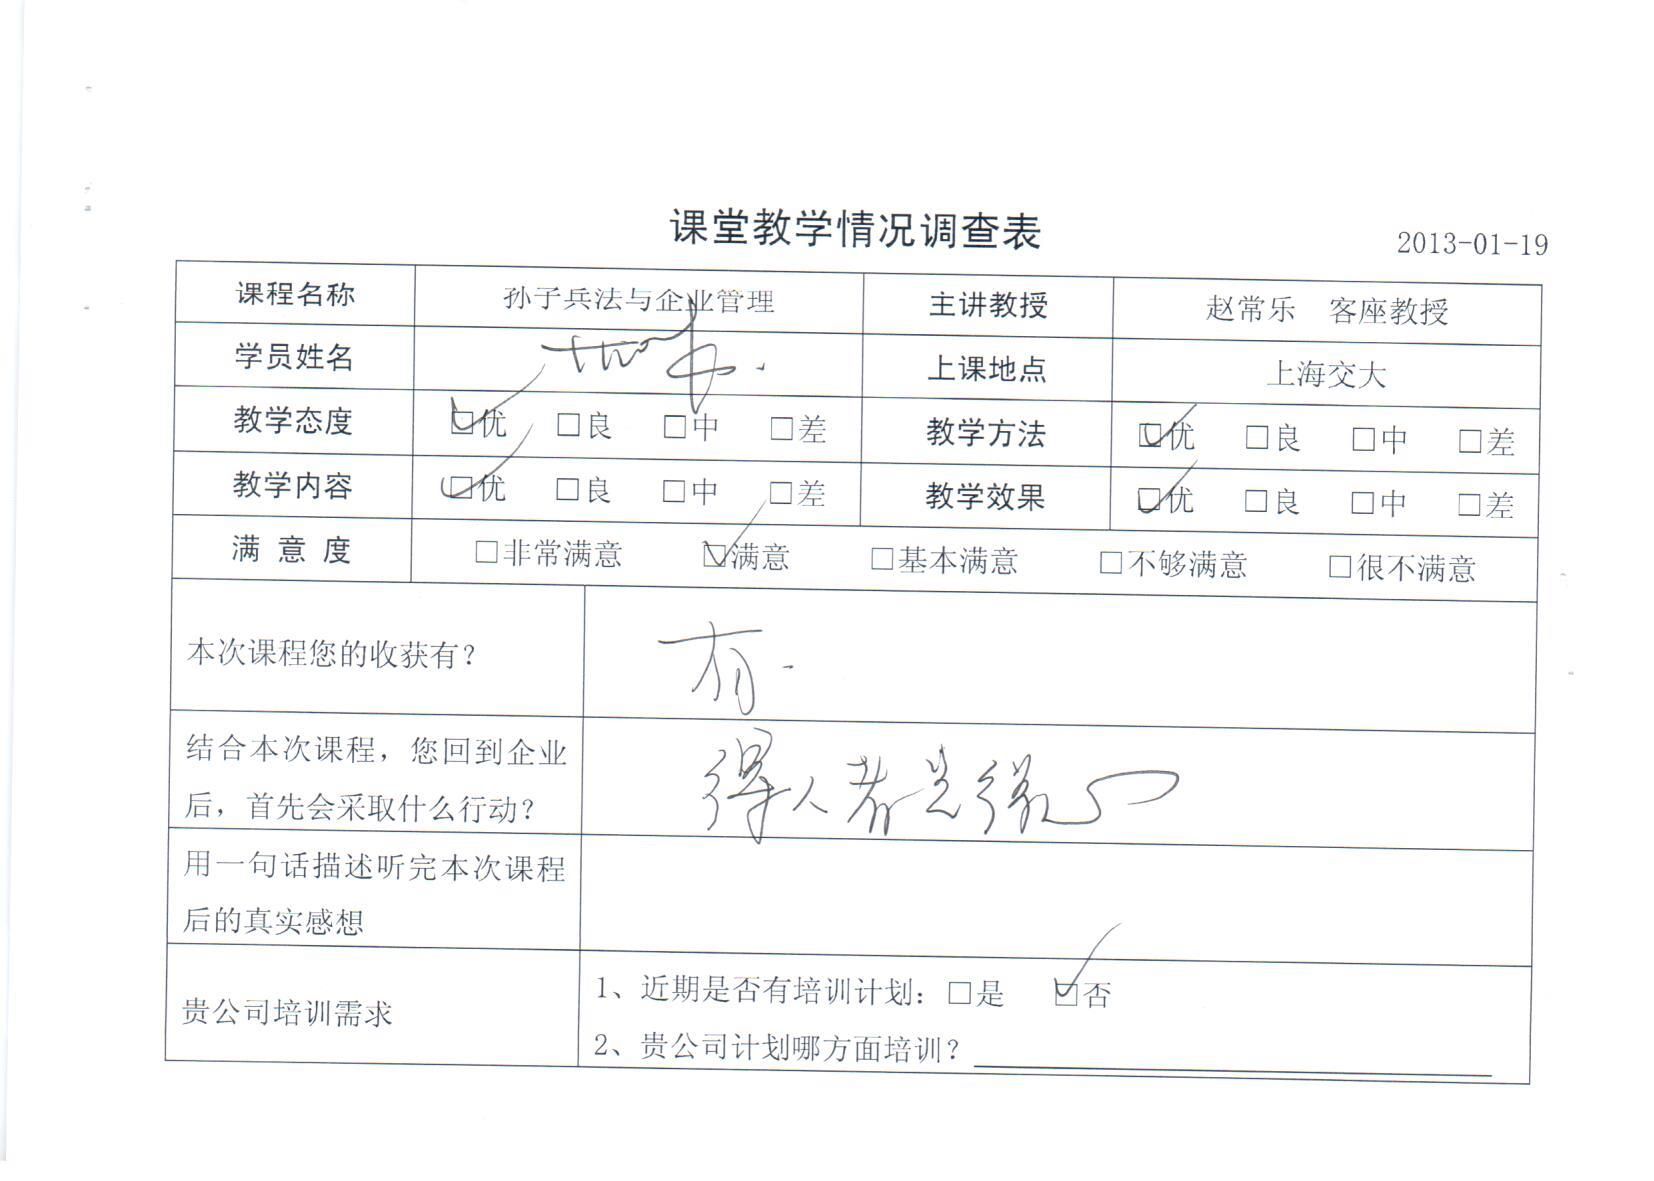 课堂教学情况调查表
2013-01-19
课程名称 孙子兵法与企业管理 主讲教授 赵常乐 客座教授
学员姓名 上课地点 上海交大
教学态度 ☑优 □良 □中 □差 教学方法 ☑优 □良 □中 □差
教学内容 ☑优 □良 □中 □差 教学效果 ☑优 □良 □中 □差
满意度 □非常满意 ☑满意 □基本满意 □不够满意 □很不满意
本次课程您的收获有？ 有.
结合本次课程，您回到企业
后，首先会采取什么行动？
得人者先得心
用一句话描述听完本次课程
后的真实感想
贵公司培训需求
1、近期是否有培训计划：□是 ☑否
2、贵公司计划哪方面培训？